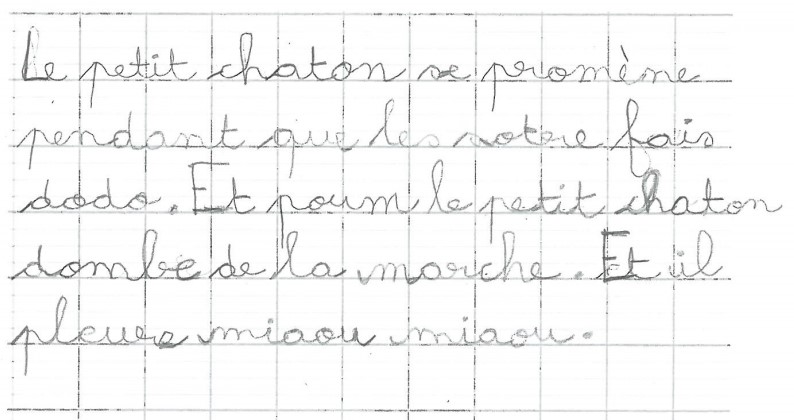 Le petit chaton se promène
pendant que les notre fais
dodo. Et poum le petit chaton
dombe de la marche. Et il
pleure miaou miaou.